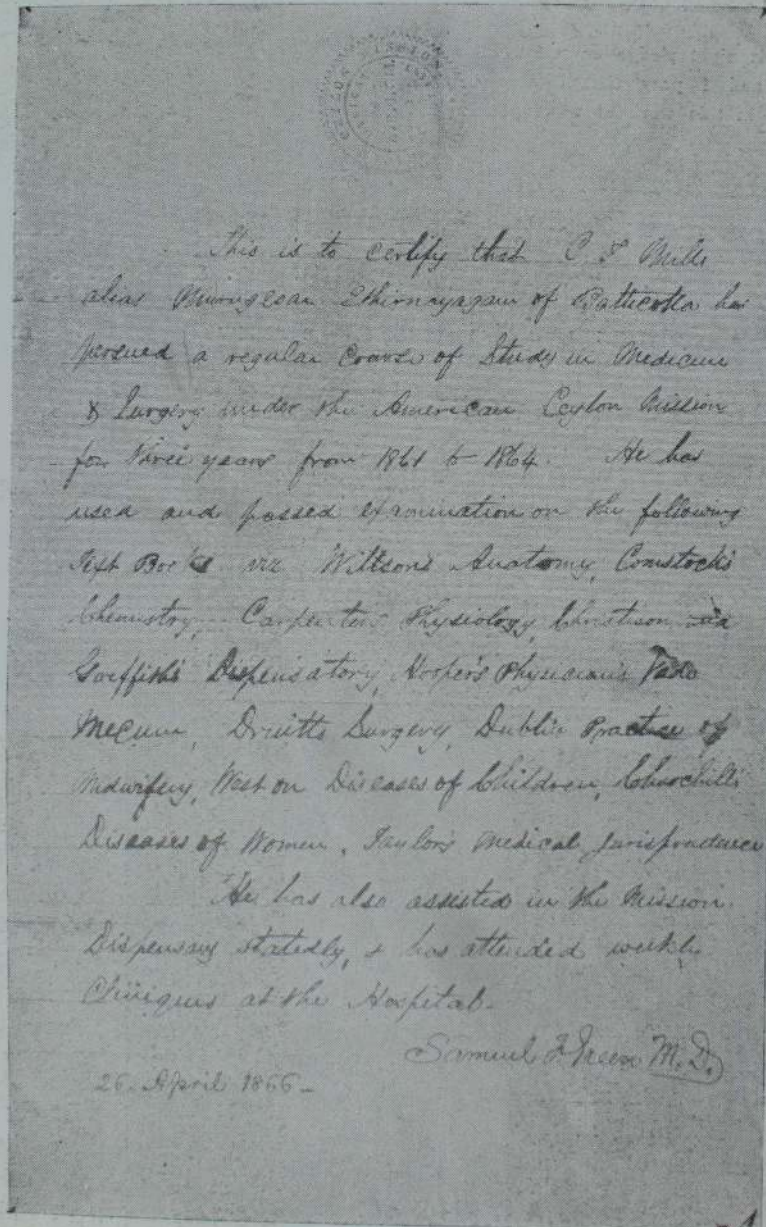 This is to certify that C. T. Mills
alias Murugesan Ethirnayagam of Batticotta has
persued a regular course of Study in Medicine
& Surgery under the American Ceylon Mission
for three years from 1861 to 1864. He has
used and passed examination on the following
Text Books viz Willson's Anatomy, Comstock's
Chemistry, Carpenter Physiology, Christison and
Griffith's Dispensatory, Hooper's Physician's Vade
Mecum, Druitts Surgery, Dublin Practice of
Midwifery, West on Diseases of Children, Churchill's
Diseases of Women, Taylor's Medical Jurisprudence
He has also assisted in the Mission
Dispensary statedly, & has attended weekly
Cliniques at the Hospital.
Samuel F. Green M.D.
26. April 1866